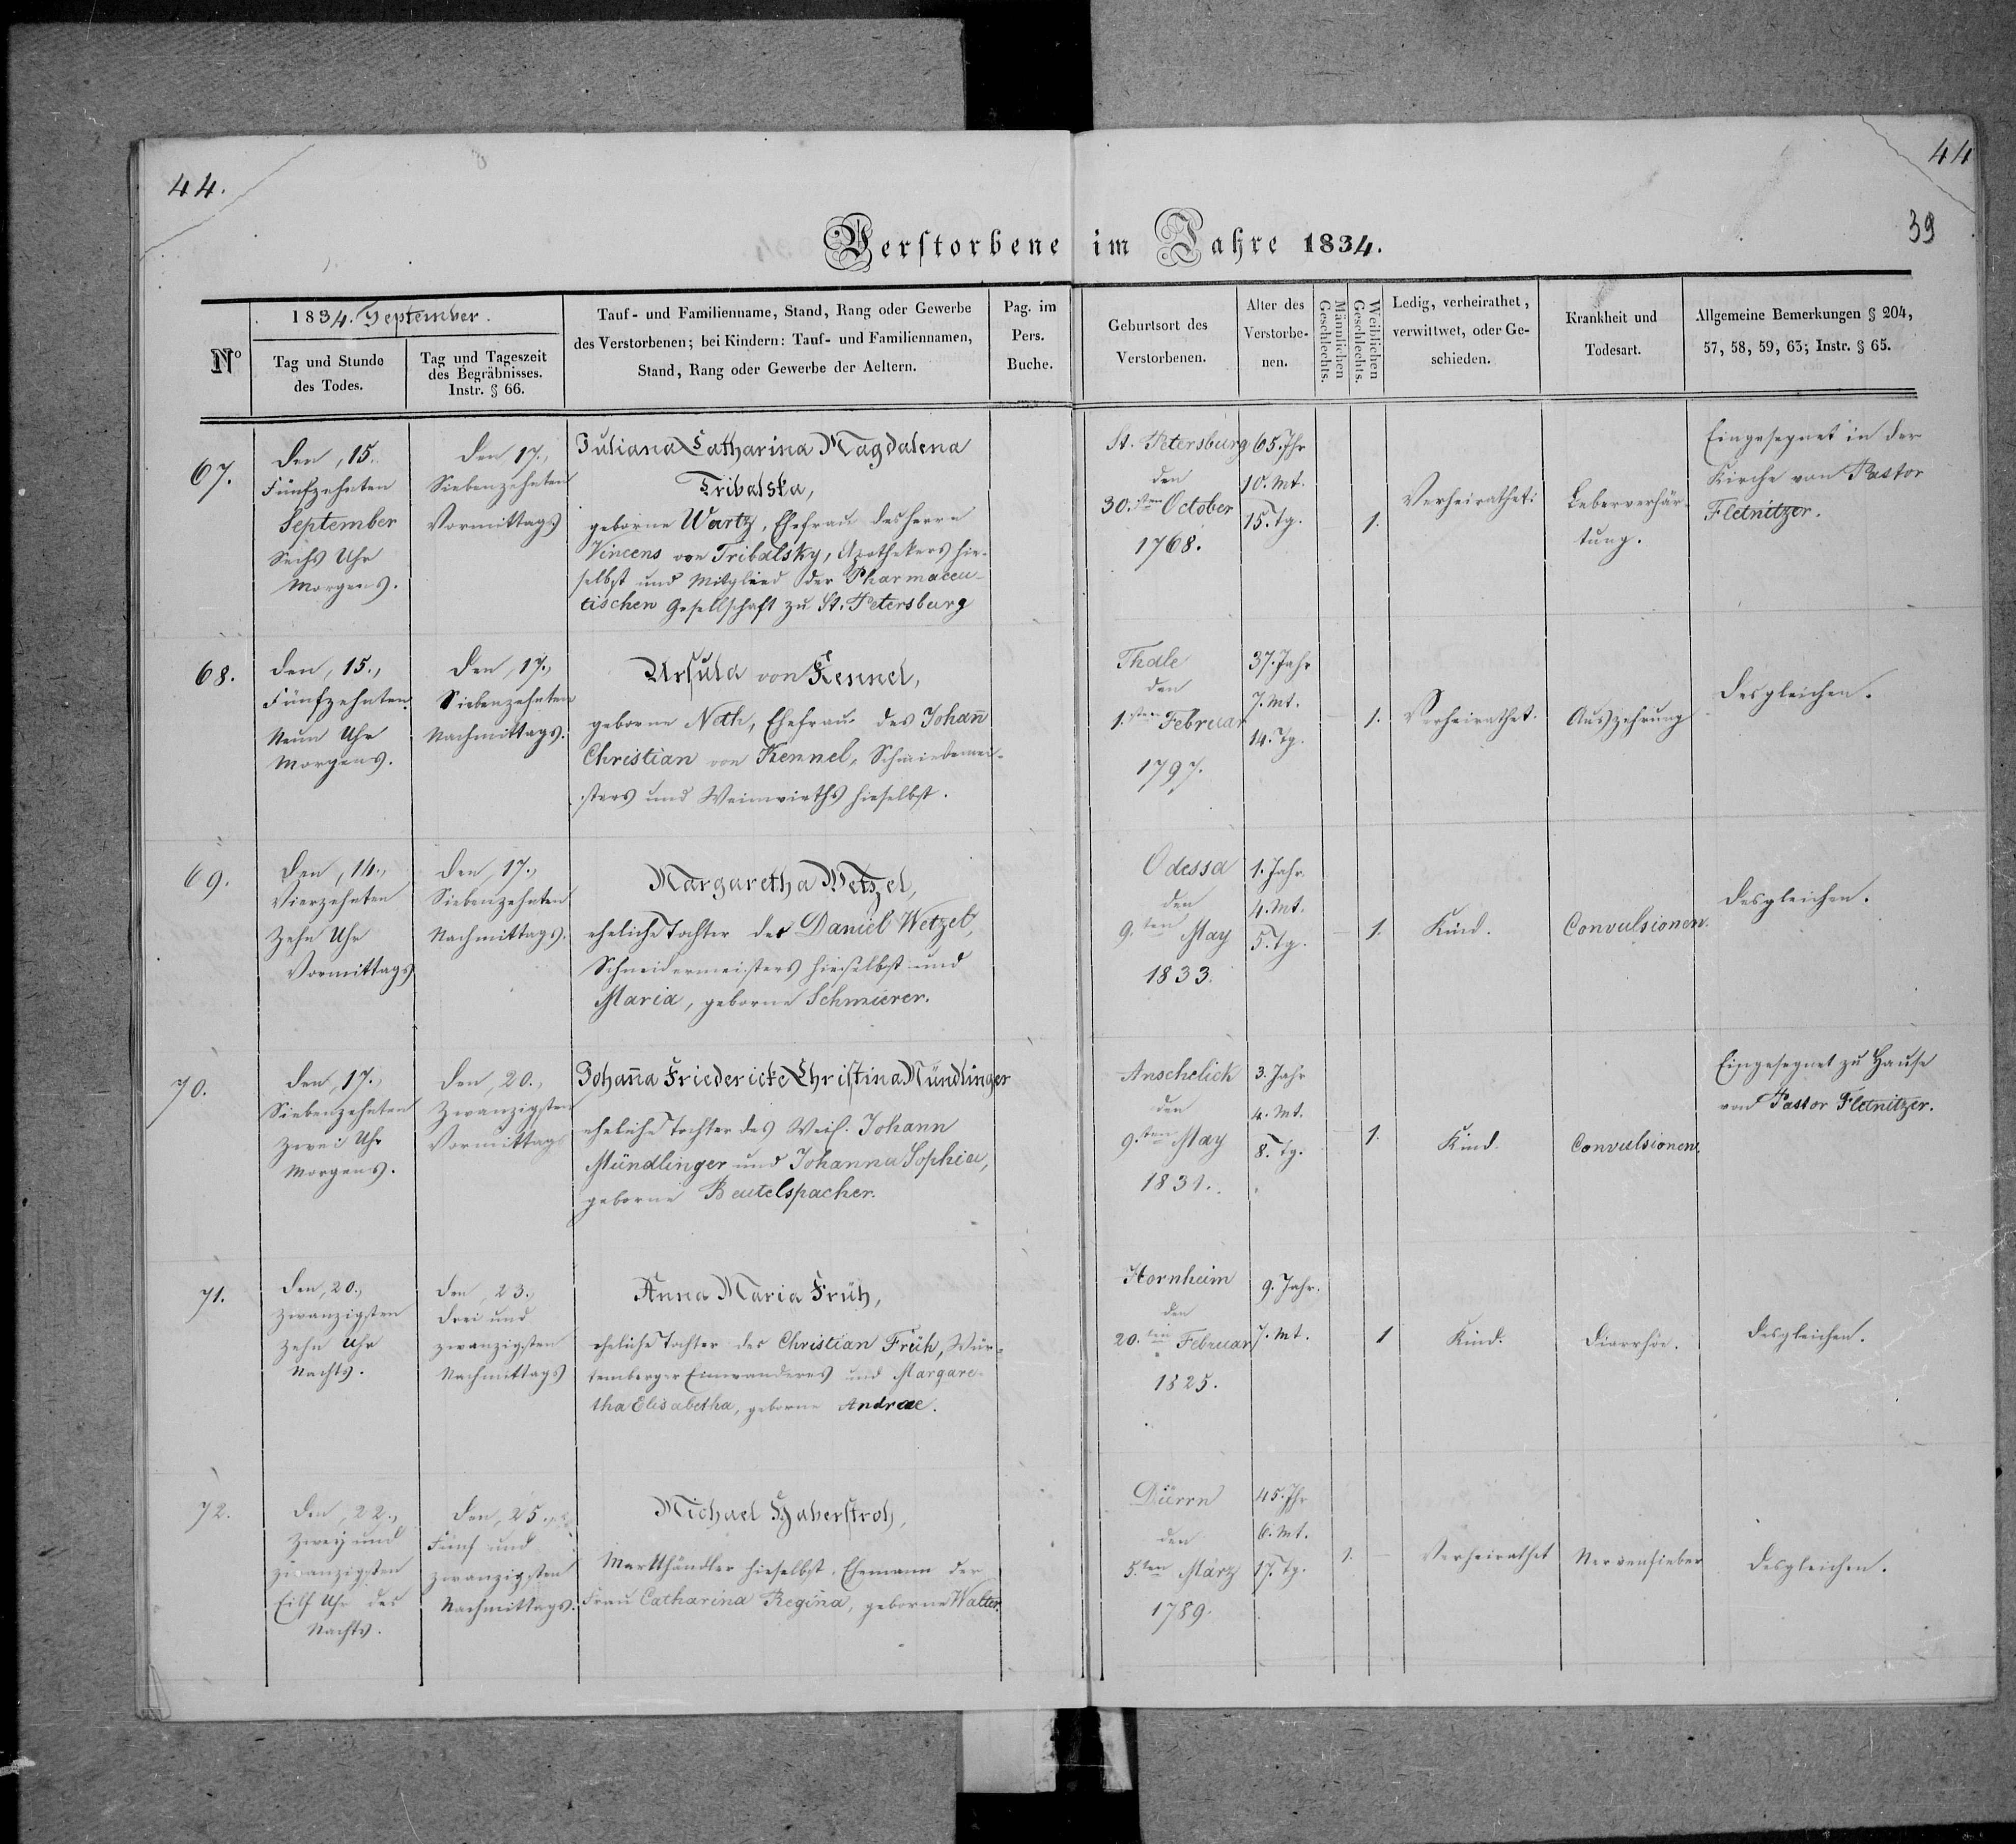 44.
44
39
Verstorbene im Jahre 1834.
Nº
1834. September.
Tag und Stunde
des Todes.
Tag und Tageszeit
des Begräbnisses.
Instr. § 66.
Tauf- und Familienname, Stand, Rang oder Gewerbe
des Verstorbenen; bei Kindern: Tauf- und Familiennamen,
Stand, Rang oder Gewerbe der Aeltern.
Pag. im
Pers.
Buche.
Geburtsort des
Verstorbenen.
Alter des
Verstorbe-
nen.
Männlichen
Geschlechts.
Weiblichen
Geschlechts.
Ledig, verheirathet,
verwittwet, oder Ge-
schieden.
Krankheit und
Todesart.
Allgemeine Bemerkungen § 204,
57, 58, 59, 63; Instr. § 65.
67.
Den, 15.
Fünfzehnten
September
Sechs Uhr
Morgens.
Den 17.,
Siebenzehnten
Vormittags
Juliana Catharina Magdalena
Tribalska,
geborne Wartz, Ehefrau des Herrn
Vincens von Tribalsky, Apothekers hie-
selbst und Mitglied der Pharmaceu-
tischen Gesellschaft zu St. Petersburg
St. Petersburg
den
30.sten October
1768.
65. Jhr
10. Mt.
15. Tg.
1.
Verheirathet:
Leberverhär-
tung.
Eingesegnet in der
Kirche von Pastor
Fletnitzer.
68.
Den, 15.,
Fünfzehnten
Neun Uhr
Morgens.
Den, 17.,
Siebenzehnten
Nachmittags.
Ursula von Kennel,
geborne Neth, Ehefrau des Johañ
Christian von Kennel, Schmiedemei-
sters und Weinwirths hieselbst.
Thale
den
1.sten Februar
1797.
37. Jahr
7. Mt.
14. Tg.
1.
Verheirathet.
Auszehrung
Desgleichen.
69.
Den, 14.,
Vierzehnten
Zehn Uhr
Vormittags
Den, 17.,
Siebenzehnten
Nachmittags.
Margaretha Wetzel,
eheliche Tochter des Daniel Wetzel,
Schneidermeisters hieselbst und
Maria, geborne Schmierer.
Odessa
den
9.ten May
1833.
1. Jahr.
4. Mt.
5. Tg.
1.
Kind.
Convulsionen.
Desgleichen.
70.
Den, 17.,
Siebenzehnten
Zwei Uhr
Morgens.
Den, 20.,
Zwanzigsten
Vormittags
Johaña Friedericke Christina Mündlinger
eheliche Tochter des Weil. Johann
Mündlinger und Johanna Sophia,
geborne Beutelspacher.
Anschelick
den
9.ten May
1831.
3. Jahr
4. Mt.
8. Tg.
1.
Kind.
Convulsionen.
Eingesegnet zu Hause
von Pastor Fletnitzer.
71.
Den, 20.,
Zwanzigsten
Zehn Uhr
Nachts.
Den, 23.,
Drei und
zwanzigsten
Nachmittags
Anna Maria Früh,
eheliche Tochter des Christian Früh, Wür-
temberger Einwanderers und Margare-
tha Elisabetha, geborne Andrae.
Hornheim
den
20.ten Februar
1825.
9. Jahr.
7. Mt.
1
Kind.
Diarrhöe.
Desgleichen.
72.
Den, 22.,
Zwey und
zwanzigsten
Eilf Uhr des
Nachts.
Den, 25.,
Fünf und
zwanzigsten
Nachmittags.
Michael Haberstroh,
Markthändler hieselbst, Ehemann der
Frau Catharina Regina, geborne Walter.
Dürrn
den
5.ten März
1789.
45. Jhr
6. Mt.
17. Tg.
1.
Verheirathet
Nervenfieber
Desgleichen.